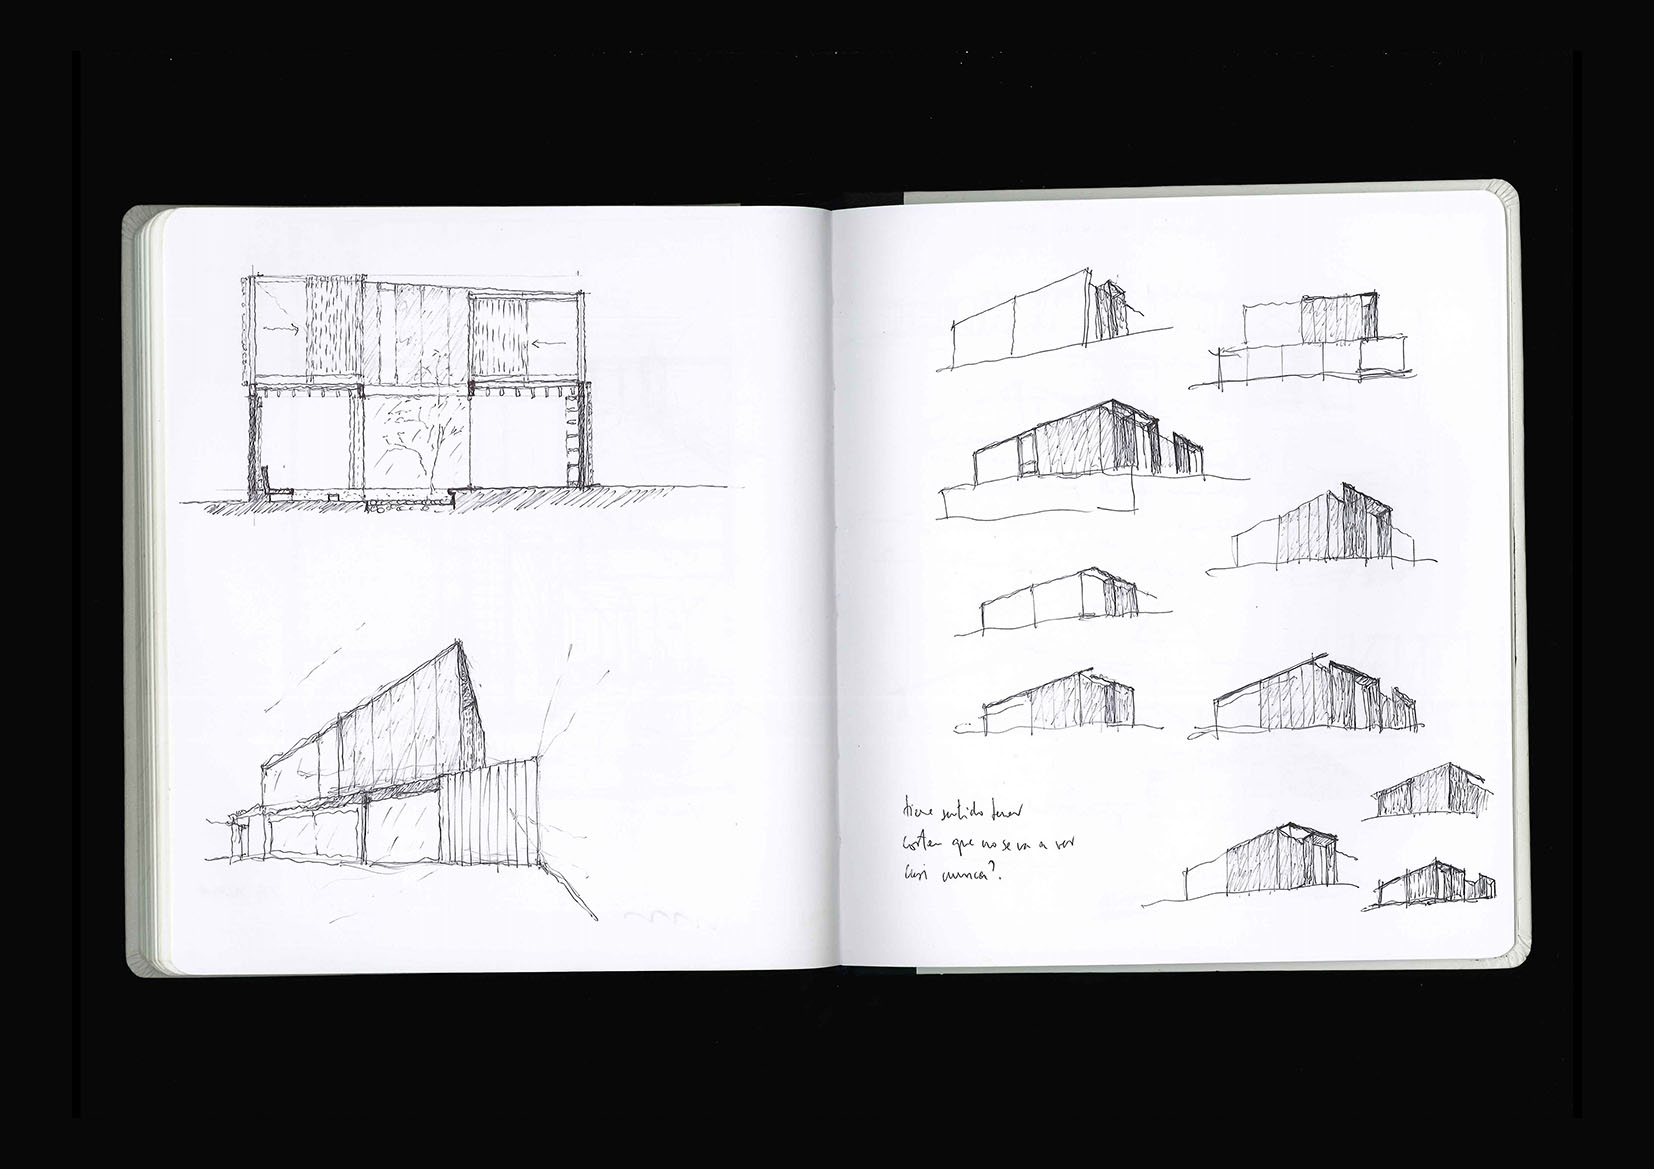 tiene sentido tener
corten que no se va a ver
casi nunca?.